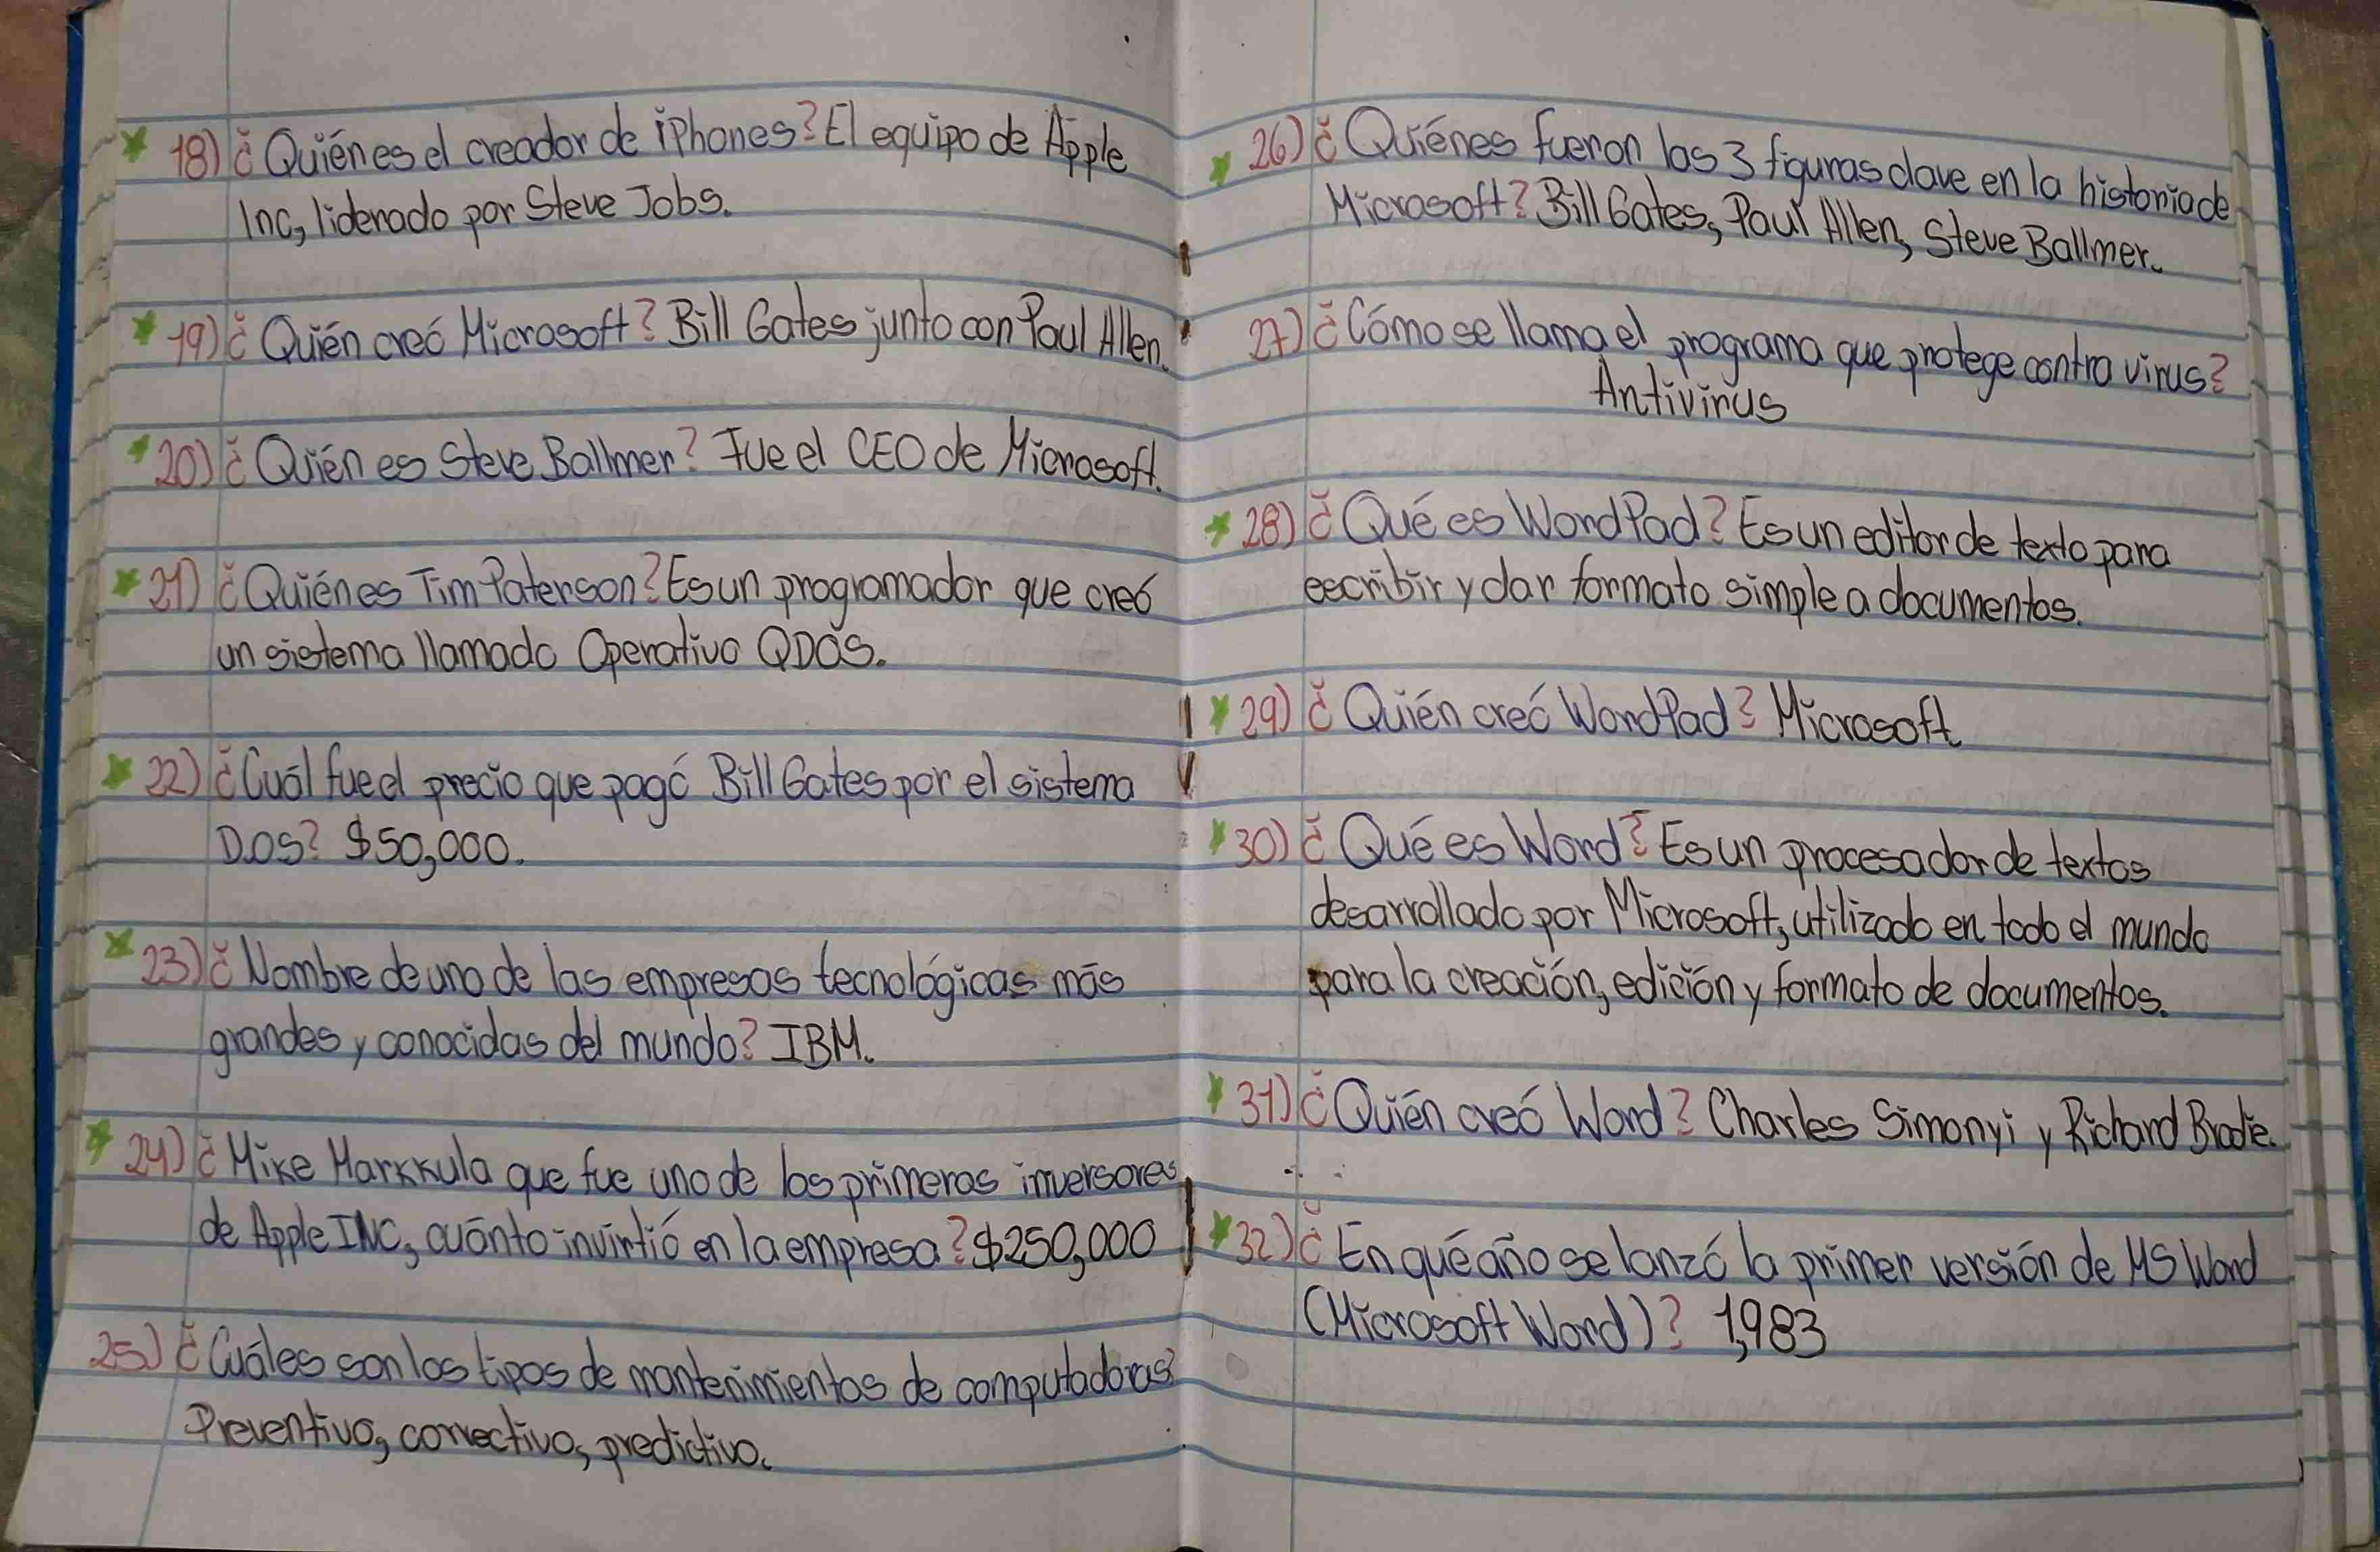 18) ¿Quién es el creador de iPhones? El equipo de Apple
Inc, liderado por Steve Jobs.
19) ¿Quién creó Microsoft? Bill Gates junto con Paul Allen.
20) ¿Quién es Steve Ballmer? Fue el CEO de Microsoft.
21) ¿Quién es Tim Paterson? Es un programador que creó
un sistema llamado Operativo QDOS.
22) ¿Cuál fue el precio que pagó Bill Gates por el sistema
D.OS? $50,000.
23) ¿Nombre de uno de las empresas tecnológicas más
grandes y conocidas del mundo? IBM.
24) ¿Mike Markkula que fue uno de los primeros inversores
de Apple INC, cuánto invirtió en la empresa? $250,000
25) ¿Cuáles son los tipos de mantenimientos de computadoras?
Preventivo, correctivo, predictivo.
26) ¿Quiénes fueron las 3 figuras clave en la historia de
Microsoft? Bill Gates, Paul Allen, Steve Ballmer.
27) ¿Cómo se llama el programa que protege contra virus?
Antivirus
28) ¿Qué es WordPad? Es un editor de texto para
escribir y dar formato simple a documentos.
29) ¿Quién creó WordPad? Microsoft.
30) ¿Qué es Word? Es un procesador de textos
desarrollado por Microsoft, utilizado en todo el mundo
para la creación, edición y formato de documentos.
31) ¿Quién creó Word? Charles Simonyi y Richard Brodie.
32) ¿En qué año se lanzó la primer versión de MS Word
(Microsoft Word)? 1,983